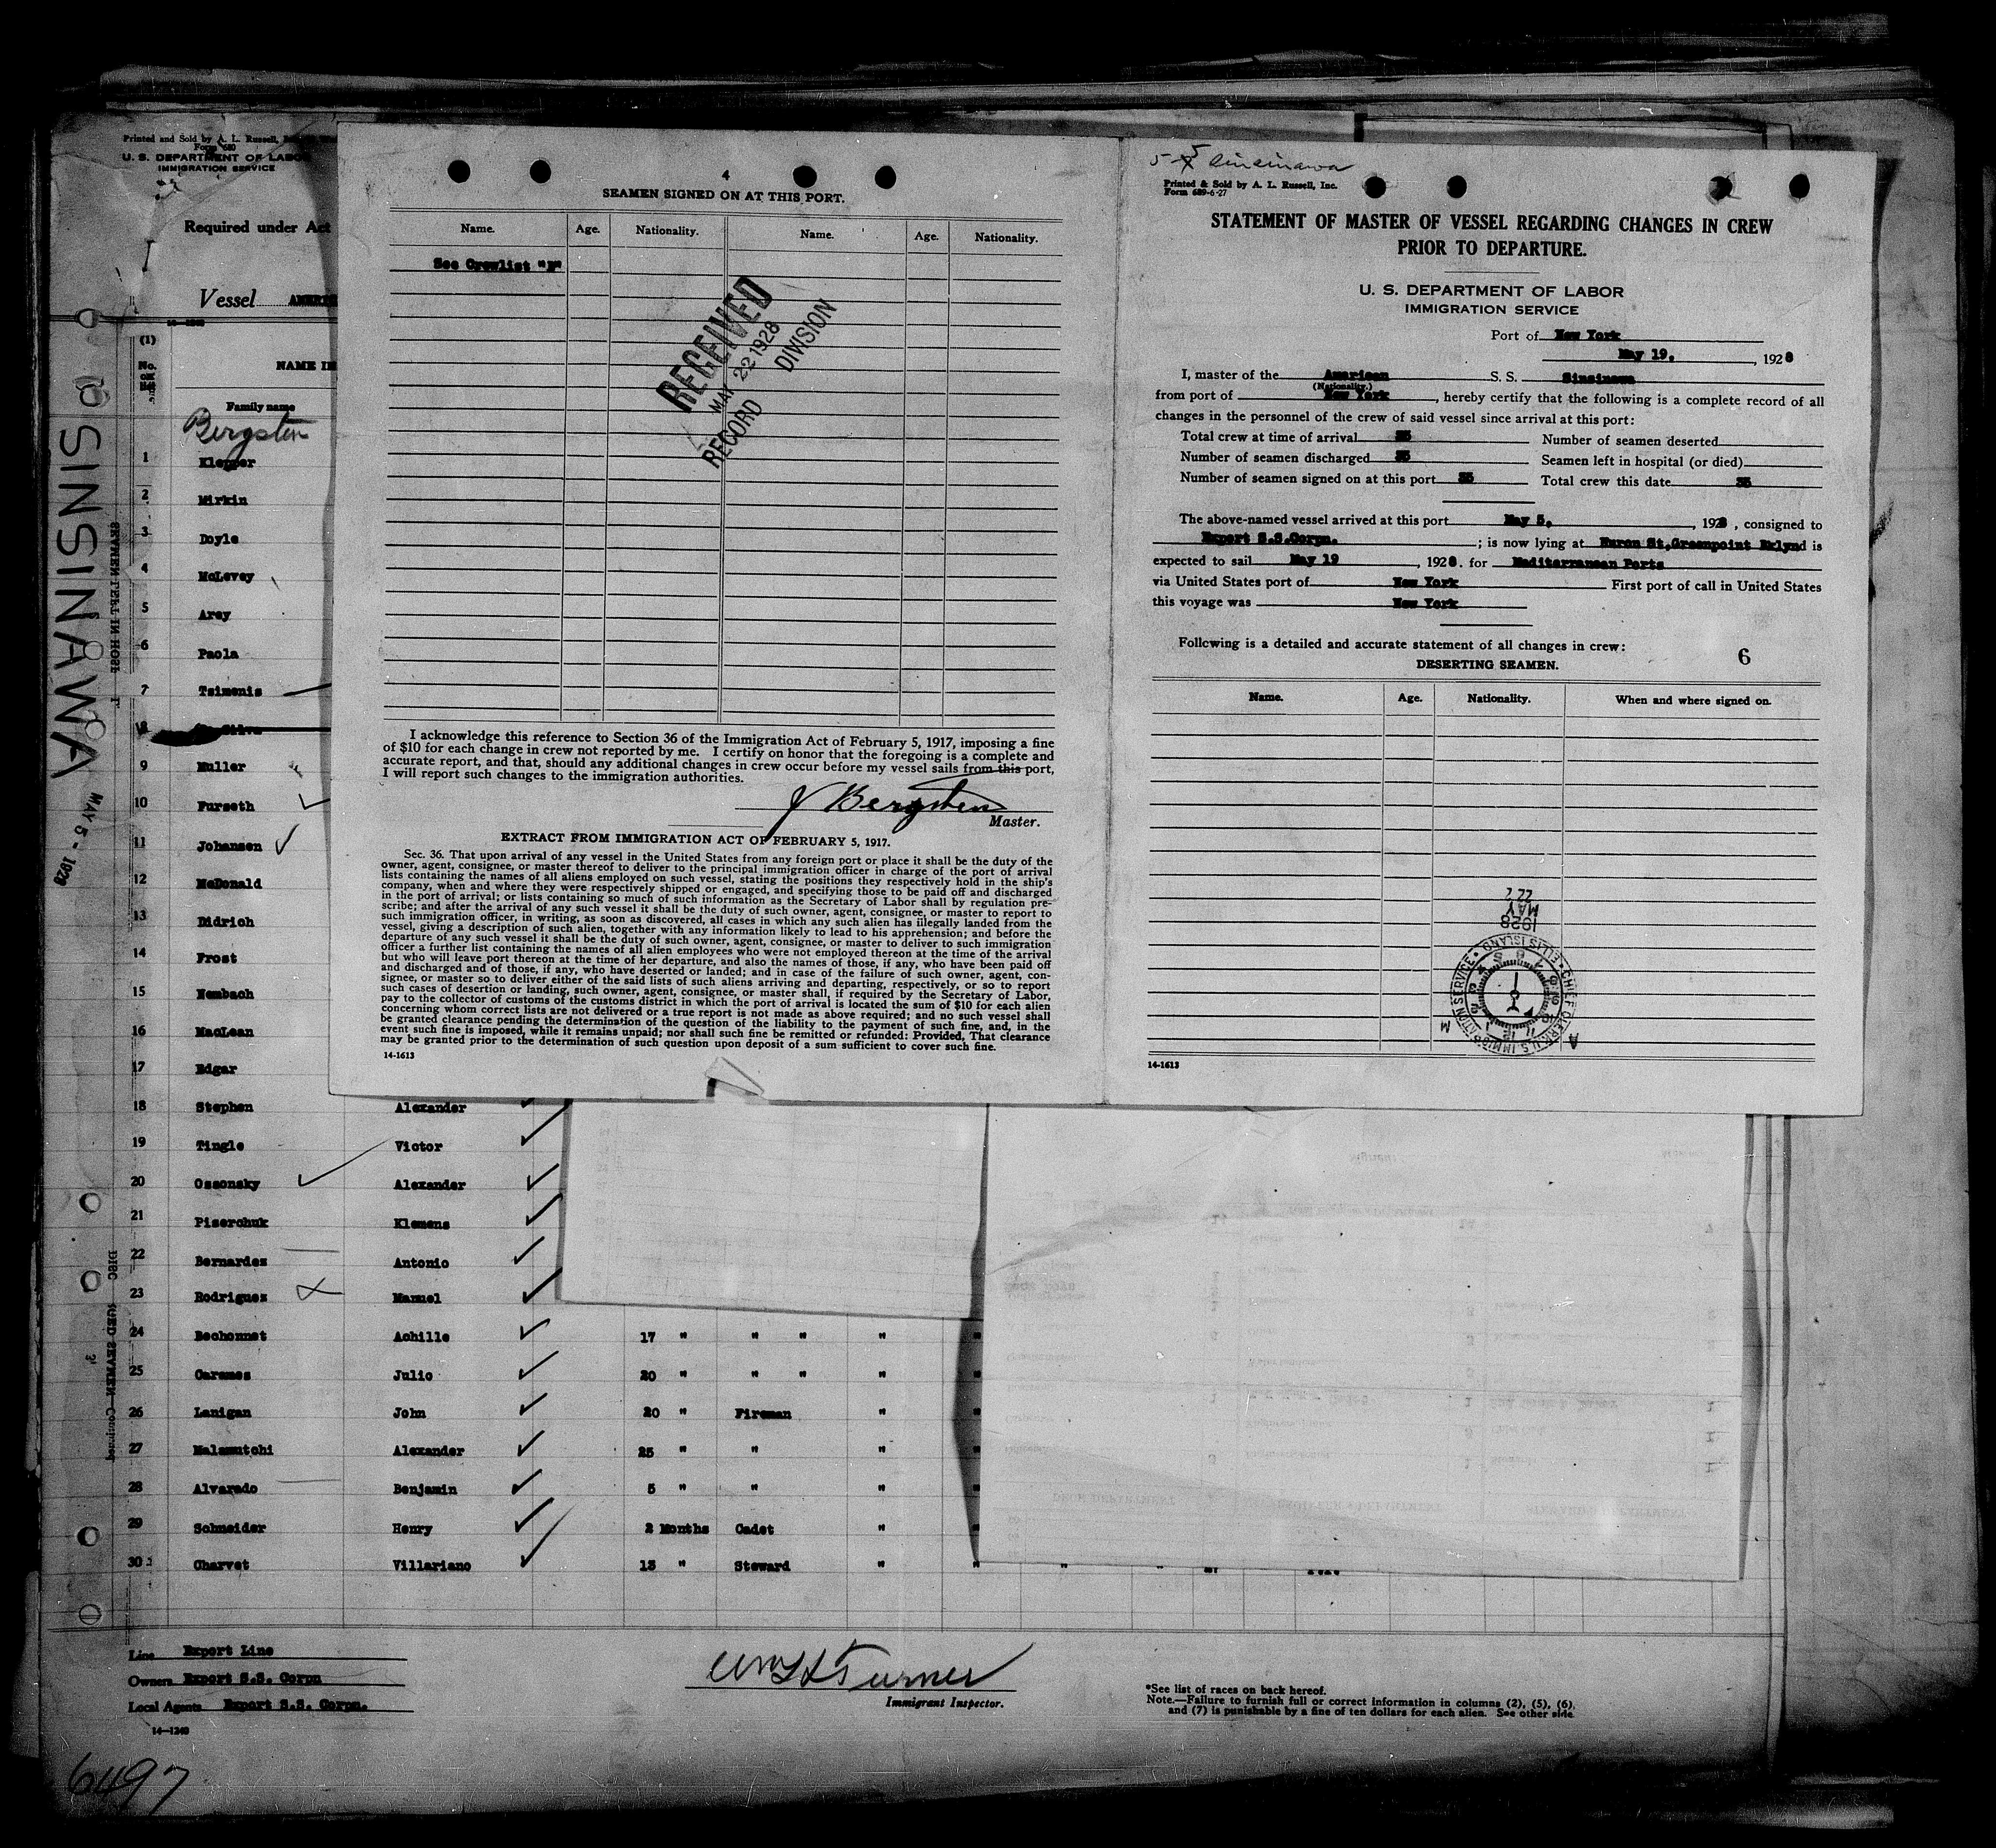 Printed and Sold by A. L. Russell,
Form 680
U. S. DEPARTMENT OF LABOR
IMMIGRATION SERVICE
Required under Act
Vessel
14-1240
(1)
No.
on
list
NAME IN
Family name
Bergsten
1 Klepper
2 Mirkin
3 Doyle
4 McLevey
5 Arey
6 Paola
7 Tsimenis
8
9 Muller
10 Furseth
11 Johansen
12 McDonald
13 Didrich
14 Frost
15 Nembach
16 MacLean
17 Edgar
18 Stephen Alexander
19 Tingle Victor
20 Ossonsky Alexander
21 Piserchuk Klemens
22 Bernardez Antonio
23 Rodriguez Manuel
24 Bechonnet Achille 17 " " " " "
25 Carames Julio 20 " " " " "
26 Lanigan John 20 " Fireman " "
27 Malamutchi Alexander 25 " " " "
28 Alvarado Benjamin 5 " " " "
29 Schneider Henry 2 Months Cadet " "
30 Charvet Villariano 13 " Steward " "
Line Export Line
Owners Export S.S. Corpn
Local Agents Export S.S. Corpn.
14-1240
6497
Wm H Turner
Immigrant Inspector.
*See list of races on back hereof.
Note.—Failure to furnish full or correct information in columns (2), (5), (6),
and (7) is punishable by a fine of ten dollars for each alien. See other side.
SINSINAWA
MAY 5 - 1928
4
SEAMEN SIGNED ON AT THIS PORT.
Name. Age. Nationality. Name. Age. Nationality.
See Crewlist
RECEIVED
MAY 22 1928
RECORD DIVISION
I acknowledge this reference to Section 36 of the Immigration Act of February 5, 1917, imposing a fine
of $10 for each change in crew not reported by me. I certify on honor that the foregoing is a complete and
accurate report, and that, should any additional changes in crew occur before my vessel sails from this port,
I will report such changes to the immigration authorities.
J Bergsten
Master.
EXTRACT FROM IMMIGRATION ACT OF FEBRUARY 5, 1917.
Sec. 36. That upon arrival of any vessel in the United States from any foreign port or place it shall be the duty of the
owner, agent, consignee, or master thereof to deliver to the principal immigration officer in charge of the port of arrival
lists containing the names of all aliens employed on such vessel, stating the positions they respectively hold in the ship's
company, when and where they were respectively shipped or engaged, and specifying those to be paid off and discharged
in the port of arrival; or lists containing so much of such information as the Secretary of Labor shall by regulation pre-
scribe; and after the arrival of any such vessel it shall be the duty of such owner, agent, consignee, or master to report to
such immigration officer, in writing, as soon as discovered, all cases in which any such alien has illegally landed from the
vessel, giving a description of such alien, together with any information likely to lead to his apprehension; and before the
departure of any such vessel it shall be the duty of such owner, agent, consignee, or master to deliver to such immigration
officer a further list containing the names of all alien employees who were not employed thereon at the time of the arrival
but who will leave port thereon at the time of her departure, and also the names of those, if any, who have been paid off
and discharged and of those, if any, who have deserted or landed; and in case of the failure of such owner, agent, con-
signee, or master so to deliver either of the said lists of such aliens arriving and departing, respectively, or so to report
such cases of desertion or landing, such owner, agent, consignee, or master shall, if required by the Secretary of Labor,
pay to the collector of customs of the customs district in which the port of arrival is located the sum of $10 for each alien
concerning whom correct lists are not delivered or a true report is not made as above required; and no such vessel shall
be granted clearance pending the determination of the question of the liability to the payment of such fine, and, in the
event such fine is imposed, while it remains unpaid; nor shall such fine be remitted or refunded: Provided, That clearance
may be granted prior to the determination of such question upon deposit of a sum sufficient to cover such fine.
14-1613
5-5 Sinsinawa
Printed & Sold by A. L. Russell, Inc.
Form 689-6-27
STATEMENT OF MASTER OF VESSEL REGARDING CHANGES IN CREW
PRIOR TO DEPARTURE.
U. S. DEPARTMENT OF LABOR
IMMIGRATION SERVICE
Port of New York
May 19, , 1928
I, master of the American S. S. Sinsinawa
(Nationality.)
from port of New York , hereby certify that the following is a complete record of all
changes in the personnel of the crew of said vessel since arrival at this port:
Total crew at time of arrival 35 Number of seamen deserted
Number of seamen discharged 35 Seamen left in hospital (or died)
Number of seamen signed on at this port 35 Total crew this date 35
The above-named vessel arrived at this port May 5, , 1928 , consigned to
Export S.S.Corpn. ; is now lying at Huron St,Greenpoint Bklyn d is
expected to sail May 19 , 1928. for Mediterranean Ports
via United States port of New York First port of call in United States
this voyage was New York
Following is a detailed and accurate statement of all changes in crew:
6
DESERTING SEAMEN.
Name. Age. Nationality. When and where signed on.
1928
MAY
22
CHIEF CLERK U.S. IMMIGRATION SERVICE • ELLIS ISLAND
14-1613